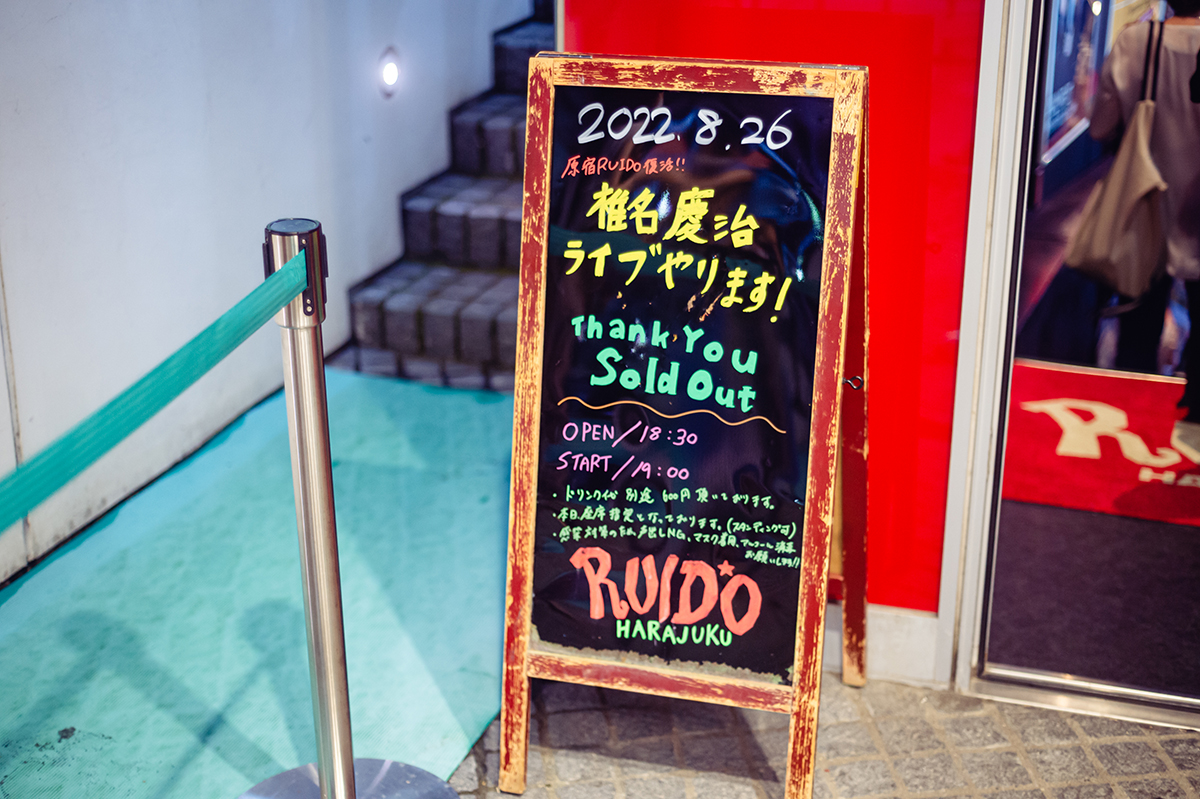 2022.8.26
原宿RUIDO復活!!
椎名慶治
ライブやります!
Thank You
Sold Out
OPEN/18:30
START/19:00
・ドリンク代 別途 600円 頂いております。
・本日、座席指定と行っております。(スタンディング可)
・感染対策のため、声出しNG、マスク着用、アルコール消毒
お願いします!!
RUIDO
HARAJUKU
RU
HA